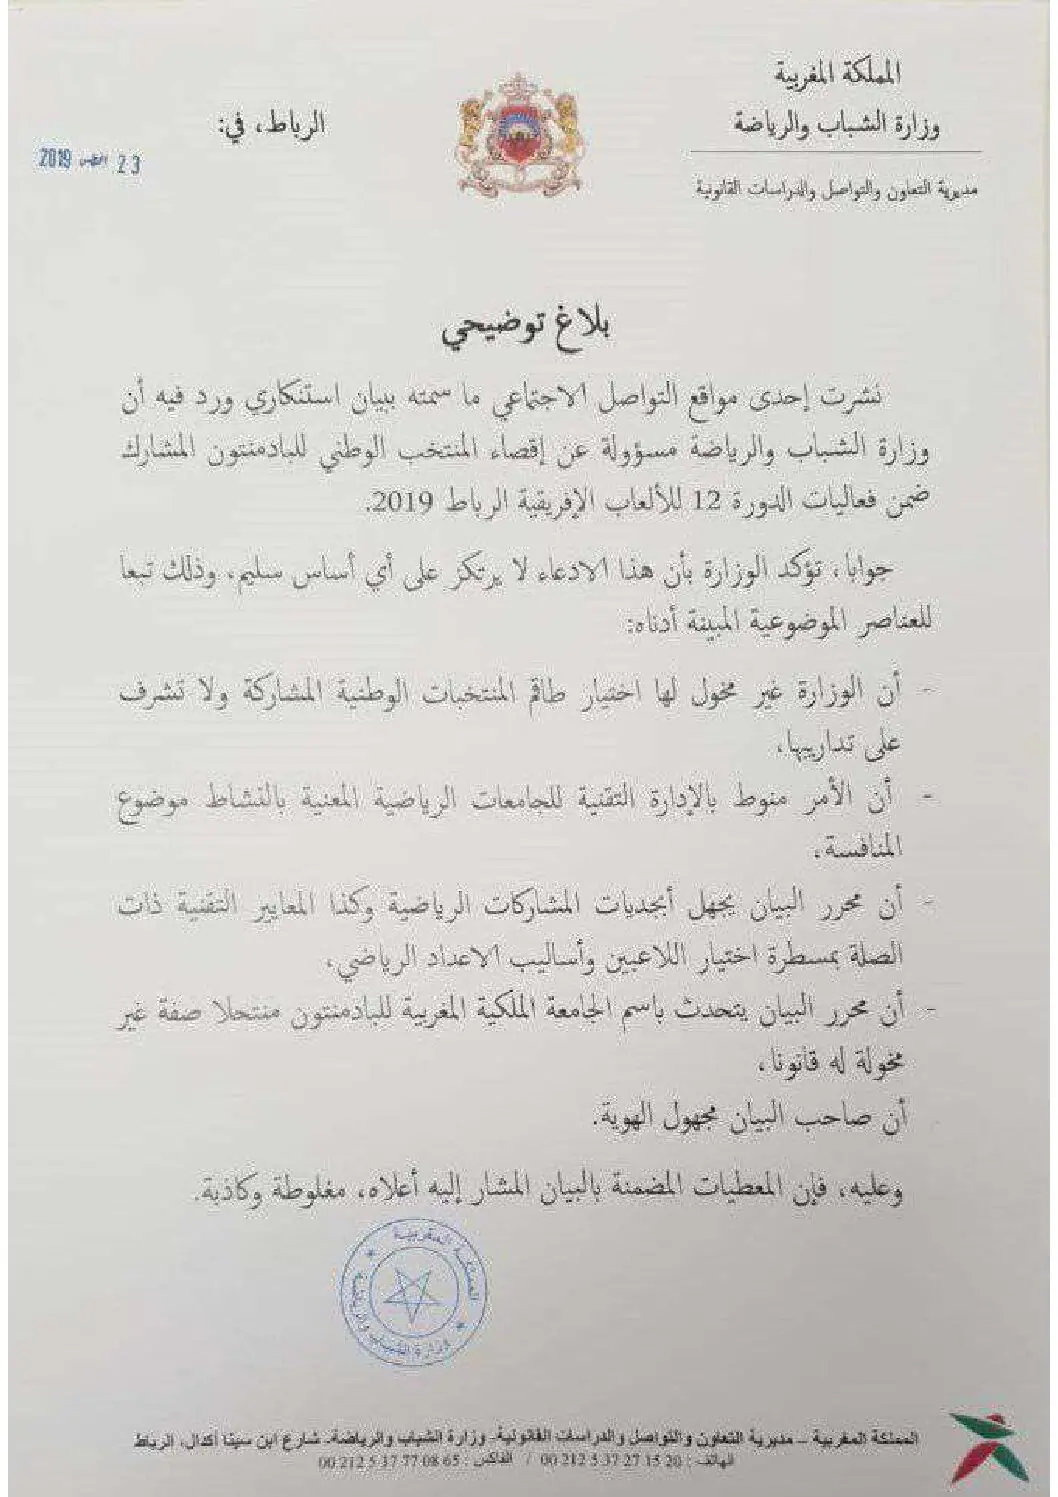 المملكة المغربية
وزارة الشباب والرياضة
مديرية التعاون والتواصل والدراسات القانونية
الرباط، في:
23 غشت 2019
بلاغ توضيحي
نشرت إحدى مواقع التواصل الاجتماعي ما سمته ببيان استنكاري ورد فيه أن
وزارة الشباب والرياضة مسؤولة عن إقصاء المنتخب الوطني للبادمنتون المشارك
ضمن فعاليات الدورة 12 للألعاب الإفريقية الرباط 2019.
جوابا، تؤكد الوزارة بأن هذا الادعاء لا يرتكز على أي أساس سليم، وذلك تبعا
للعناصر الموضوعية المبينة أدناه:
- أن الوزارة غير مخول لها اختيار طاقم المنتخبات الوطنية المشاركة ولا تشرف
على تداريبها،
- أن الأمر منوط بالإدارة التقنية للجامعات الرياضية المعنية بالنشاط موضوع
المنافسة،
- أن محرر البيان يجهل أبجديات المشاركات الرياضية وكذا المعايير التقنية ذات
الصلة بمسطرة اختيار اللاعبين وأساليب الاعداد الرياضي،
- أن محرر البيان يتحدث باسم الجامعة الملكية المغربية للبادمنتون منتحلا صفة غير
مخولة له قانونا،
- أن صاحب البيان مجهول الهوية.
وعليه، فإن المعطيات المضمنة بالبيان المشار إليه أعلاه، مغلوطة وكاذبة.
المملكة المغربية
وزارة الشباب والرياضة
المملكة المغربية – مديرية التعاون والتواصل والدراسات القانونية- وزارة الشباب والرياضة- شارع ابن سينا أكدال، الرباط
الهاتف : 00 212 5 37 27 15 20 / الفاكس : 00 212 5 37 77 08 65